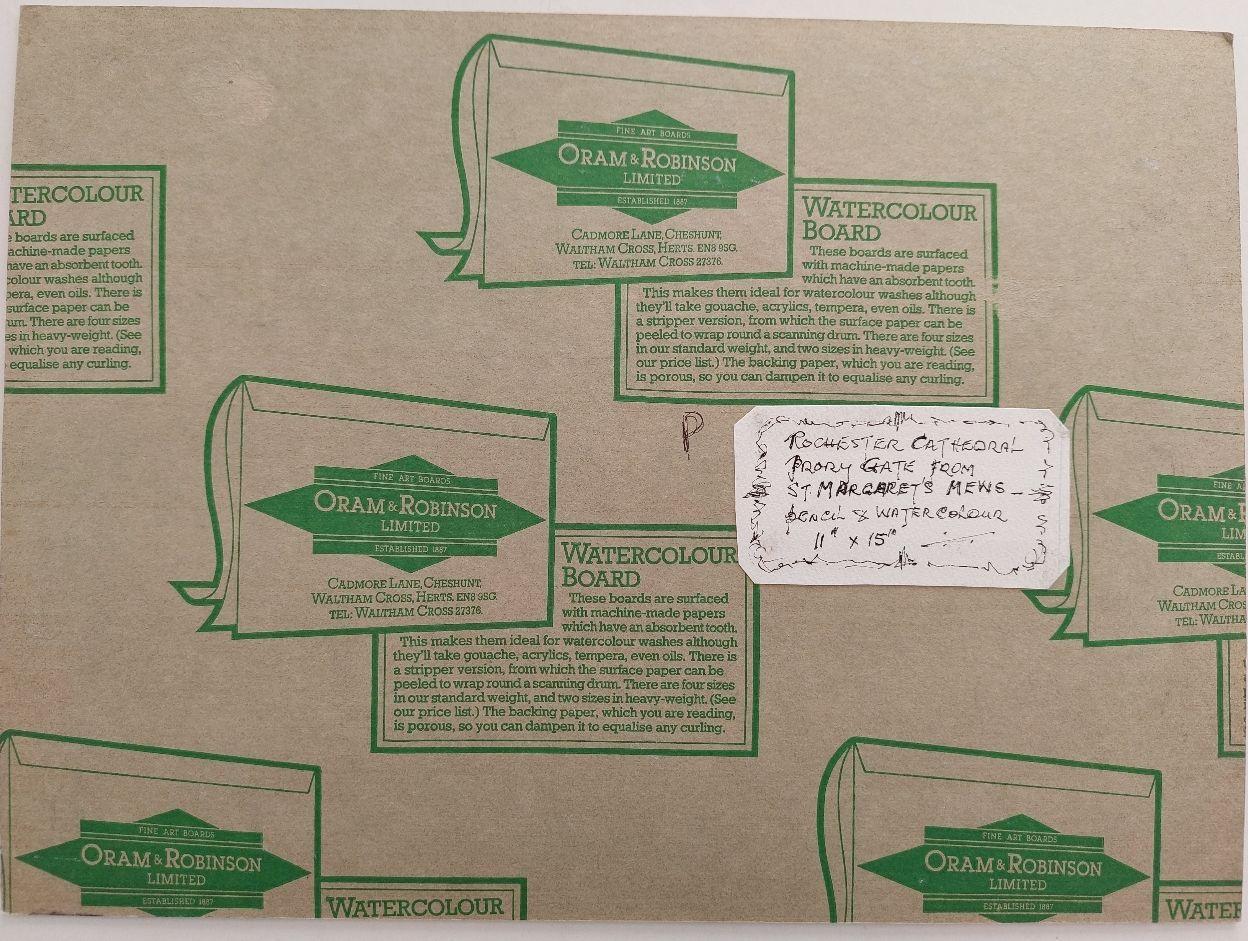 FINE ART BOARDS
ORAM & ROBINSON
LIMITED
ESTABLISHED 1887
CADMORE LANE, CHESHUNT,
WALTHAM CROSS, HERTS. EN8 9SG.
TEL: WALTHAM CROSS 27376.
WATERCOLOUR
BOARD
These boards are surfaced
with machine-made papers
which have an absorbent tooth.
This makes them ideal for watercolour washes although
they'll take gouache, acrylics, tempera, even oils. There is
a stripper version, from which the surface paper can be
peeled to wrap round a scanning drum. There are four sizes
in our standard weight, and two sizes in heavy-weight. (See
our price list.) The backing paper, which you are reading,
is porous, so you can dampen it to equalise any curling.
TERCOLOUR
ARD
e boards are surfaced
achine-made papers
have an absorbent tooth.
colour washes although
pera, even oils. There is
surface paper can be
um. There are four sizes
es in heavy-weight. (See
which you are reading,
equalise any curling.
P
ROCHESTER CATHEDRAL
PRORY GATE FROM
ST MARGARETS MEWS -
PENCIL & WATERCOLOUR
11" x 15"
FINE ART BOARDS
ORAM & ROBINSON
LIMITED
ESTABLISHED 1887
CADMORE LANE, CHESHUNT,
WALTHAM CROSS, HERTS. EN8 9SG.
TEL: WALTHAM CROSS 27376.
WATERCOLOUR
BOARD
These boards are surfaced
with machine-made papers
which have an absorbent tooth.
This makes them ideal for watercolour washes although
they'll take gouache, acrylics, tempera, even oils. There is
a stripper version, from which the surface paper can be
peeled to wrap round a scanning drum. There are four sizes
in our standard weight, and two sizes in heavy-weight. (See
our price list.) The backing paper, which you are reading,
is porous, so you can dampen it to equalise any curling.
FINE A
ORAM & R
LIM
ESTABL
CADMORE LA
WALTHAM CROS
TEL: WALTHA
FINE ART BOARDS
ORAM & ROBINSON
LIMITED
ESTABLISHED 1887
WATERCOLOUR
FINE ART BOARDS
ORAM & ROBINSON
LIMITED
ESTABLISHED 1887
WATER